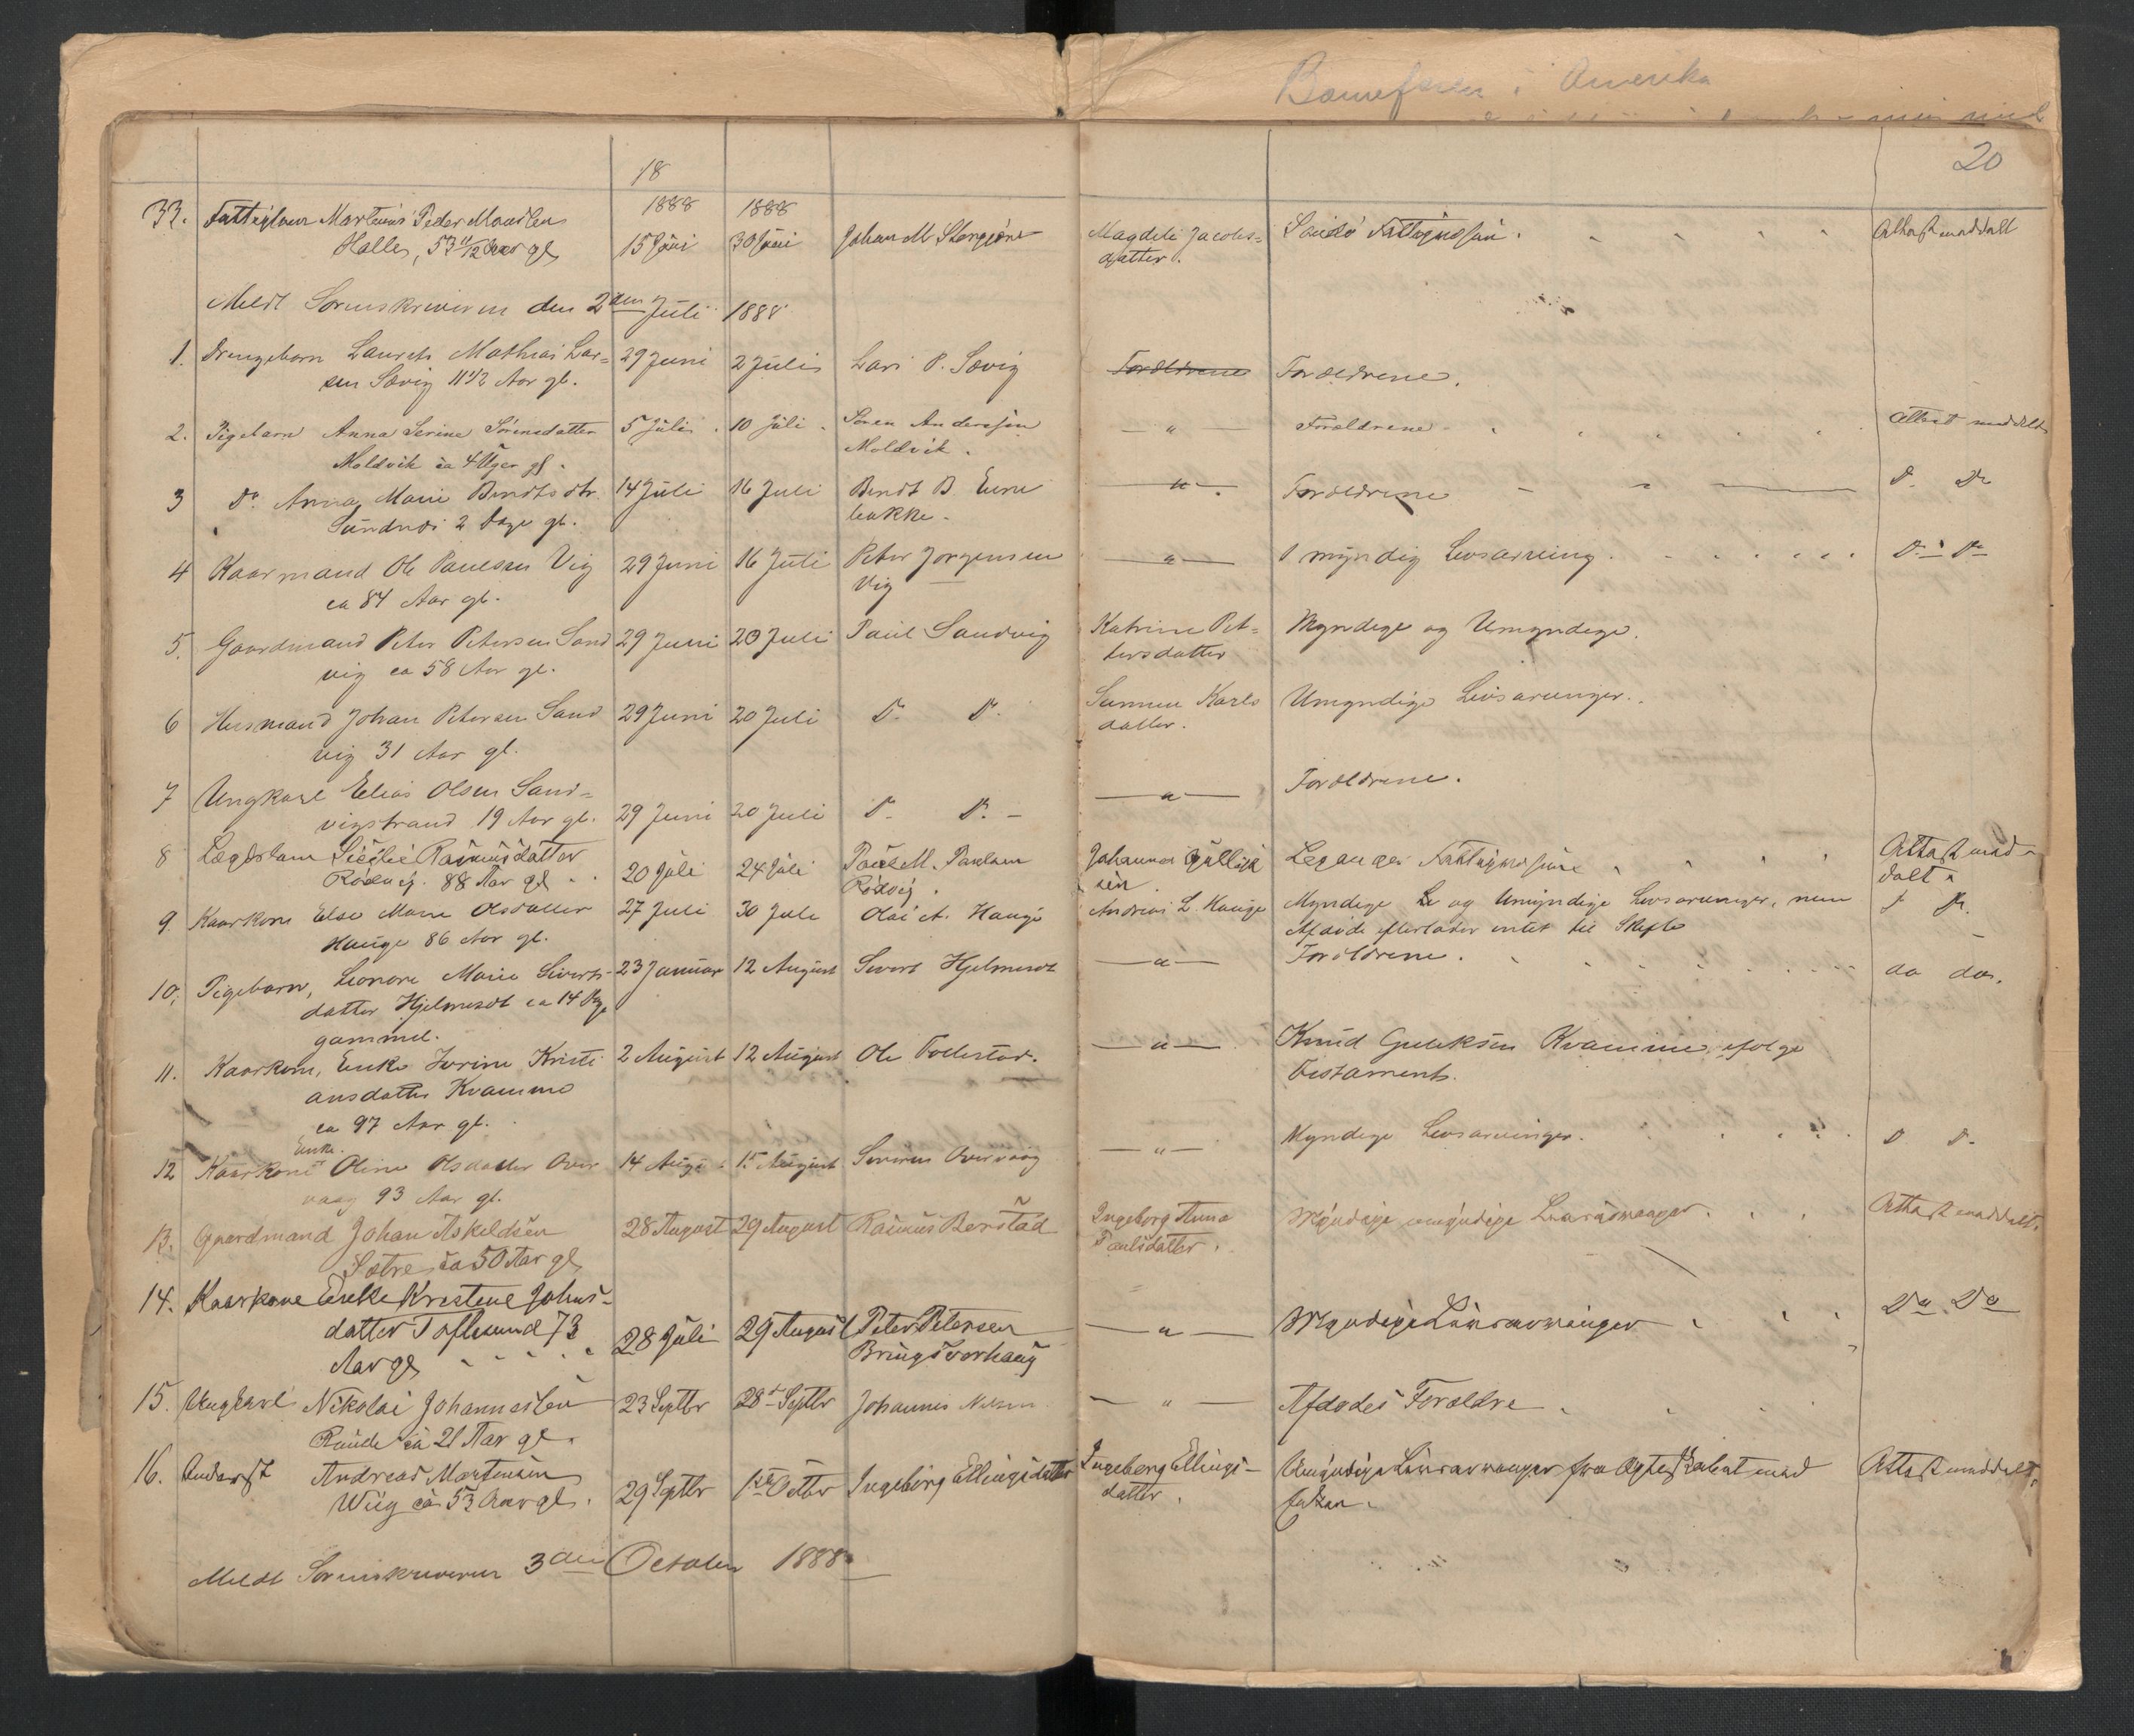 i Amerika
20
18
1888 1888
33. Martinus Peder 15 Juni 30 Juni Johan M. Magdeli Jacobs= Sandø Attest meddelt
Halle, 53 11/12 Aar gl datter.
Meldt Sorenskriveren den 2den Juli 1888
1. Drengebarn Laurits Mathias Lar= 29 Juni 2 Juli Lars P. Sævig Forældrene Forældrene.
sen Sævig 11 1/2 Aar gl.
2. Pigebarn Anna Serine Sørensdatter 5 Juli 10 Juli Søren Andersen — " — Forældrene Attest meddelt
Moldvik ca 4 Uger gl. Moldvik.
3 Do. Anna Marie Berndtsdtr. 14 Juli 16 Juli Berndt B. — " — Forældrene D. Do
2 Dage gl. bakke.
4 Kaarmand Ole Paulsen Vig 29 Juni 16 Juli Peter Jørgensen — " — 1 myndig Livsarving. Do Do
ca 84 Aar gl. Vig
5. Gaardmand Peter Petersen Sand 29 Juni 20 Juli Paul Sandvig Katrine Pet= Myndige og Umyndige.
vig ca 58 Aar gl. tersdatter
6 Husmand Johan Petersen Sand 29 Juni 20 Juli D. D. Karls Umyndige Livsarvinger.
vig 31 Aar gl. datter.
7 Ungkarl Elias Olsen Sand= 29 Juni 20 Juli D. D. — " — Forældrene.
vigstrand 19 Aar gl.
8 Lægdslem Rasmusdatter 20 Juli 24 Juli M. Paulsen Johannes Attest med-
88 Aar gl Rødvig. sen delt
9. Kaarkone Else Marie Olsdatter 27 Juli 30 Juli Olai A. Hauge Andreas L. Hauge Myndige og Umyndige Livsarvinger, men
Hauge 86 Aar gl. Afdøde efterlader intet til Skifte
10. Pigebarn, Leonore Marie Siverts- 23 Januar 12 August Sivert Hjelmeset — " — Forældrene. do do.
datter Hjelmeset ca 14 Dage
gammel.
11. Kaarkone, Enke Kristi 2 August 12 August Ole — " — Knud Kvamme ifølge
ansdatter Kvamme Testament.
ca 97 Aar gl.
Enke.
12 Kaarkone Oline Olsdatter Over 14 Aug. 15 August Severin Overvaag — " — Myndige Livsarvinger. D D.
vaag 93 Aar gl.
13. Gaardmand Johan Askeldsen 28 August 29 August Rasmus Berstad Ingeborg Anna Myndige umyndige Attest meddelt.
Sætre, ca 50 Aar gl Paulsdatter.
14. Kaarkone Enke Kristine Johns- 28 Juli 29 August Peter Petersen — " — Myndige Livsarvinger Do Do
datter Toftesund 73 Bringsvorhaug
Aar gl
15. Ungkarl Nikolai Johannessen 23 Septbr 28 Septbr Johannes Nilsen — " — Afdødes Forældre
Runde ca 21 Aar gl.
16. Inderst Andreas Martinsen 29 Septbr 1ste Octbr Ingeborg Ellingsdatter Ingeborg Ellings- Umyndige Livsarvinger fra Ægteskabet med Attest meddelt.
Wiig ca 53 Aar gl. datter. Enken.
Meldt Sorenskriveren 3die October 1888